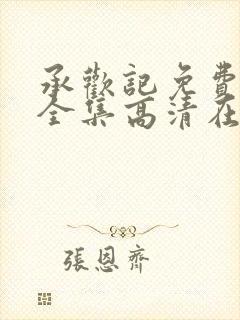 承歡記免費
全集高清在
張恩齊